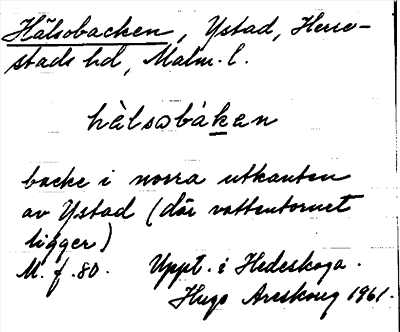 Hälsobacken, Ystad, Herre-
stads hd, Malm. l.
hèlsobáken
backe i norra utkanten
av Ystad (där vattentornet
ligger)
M. f. 80. Uppt. i Hedeskoga.
Hugo Areskoug 1961.